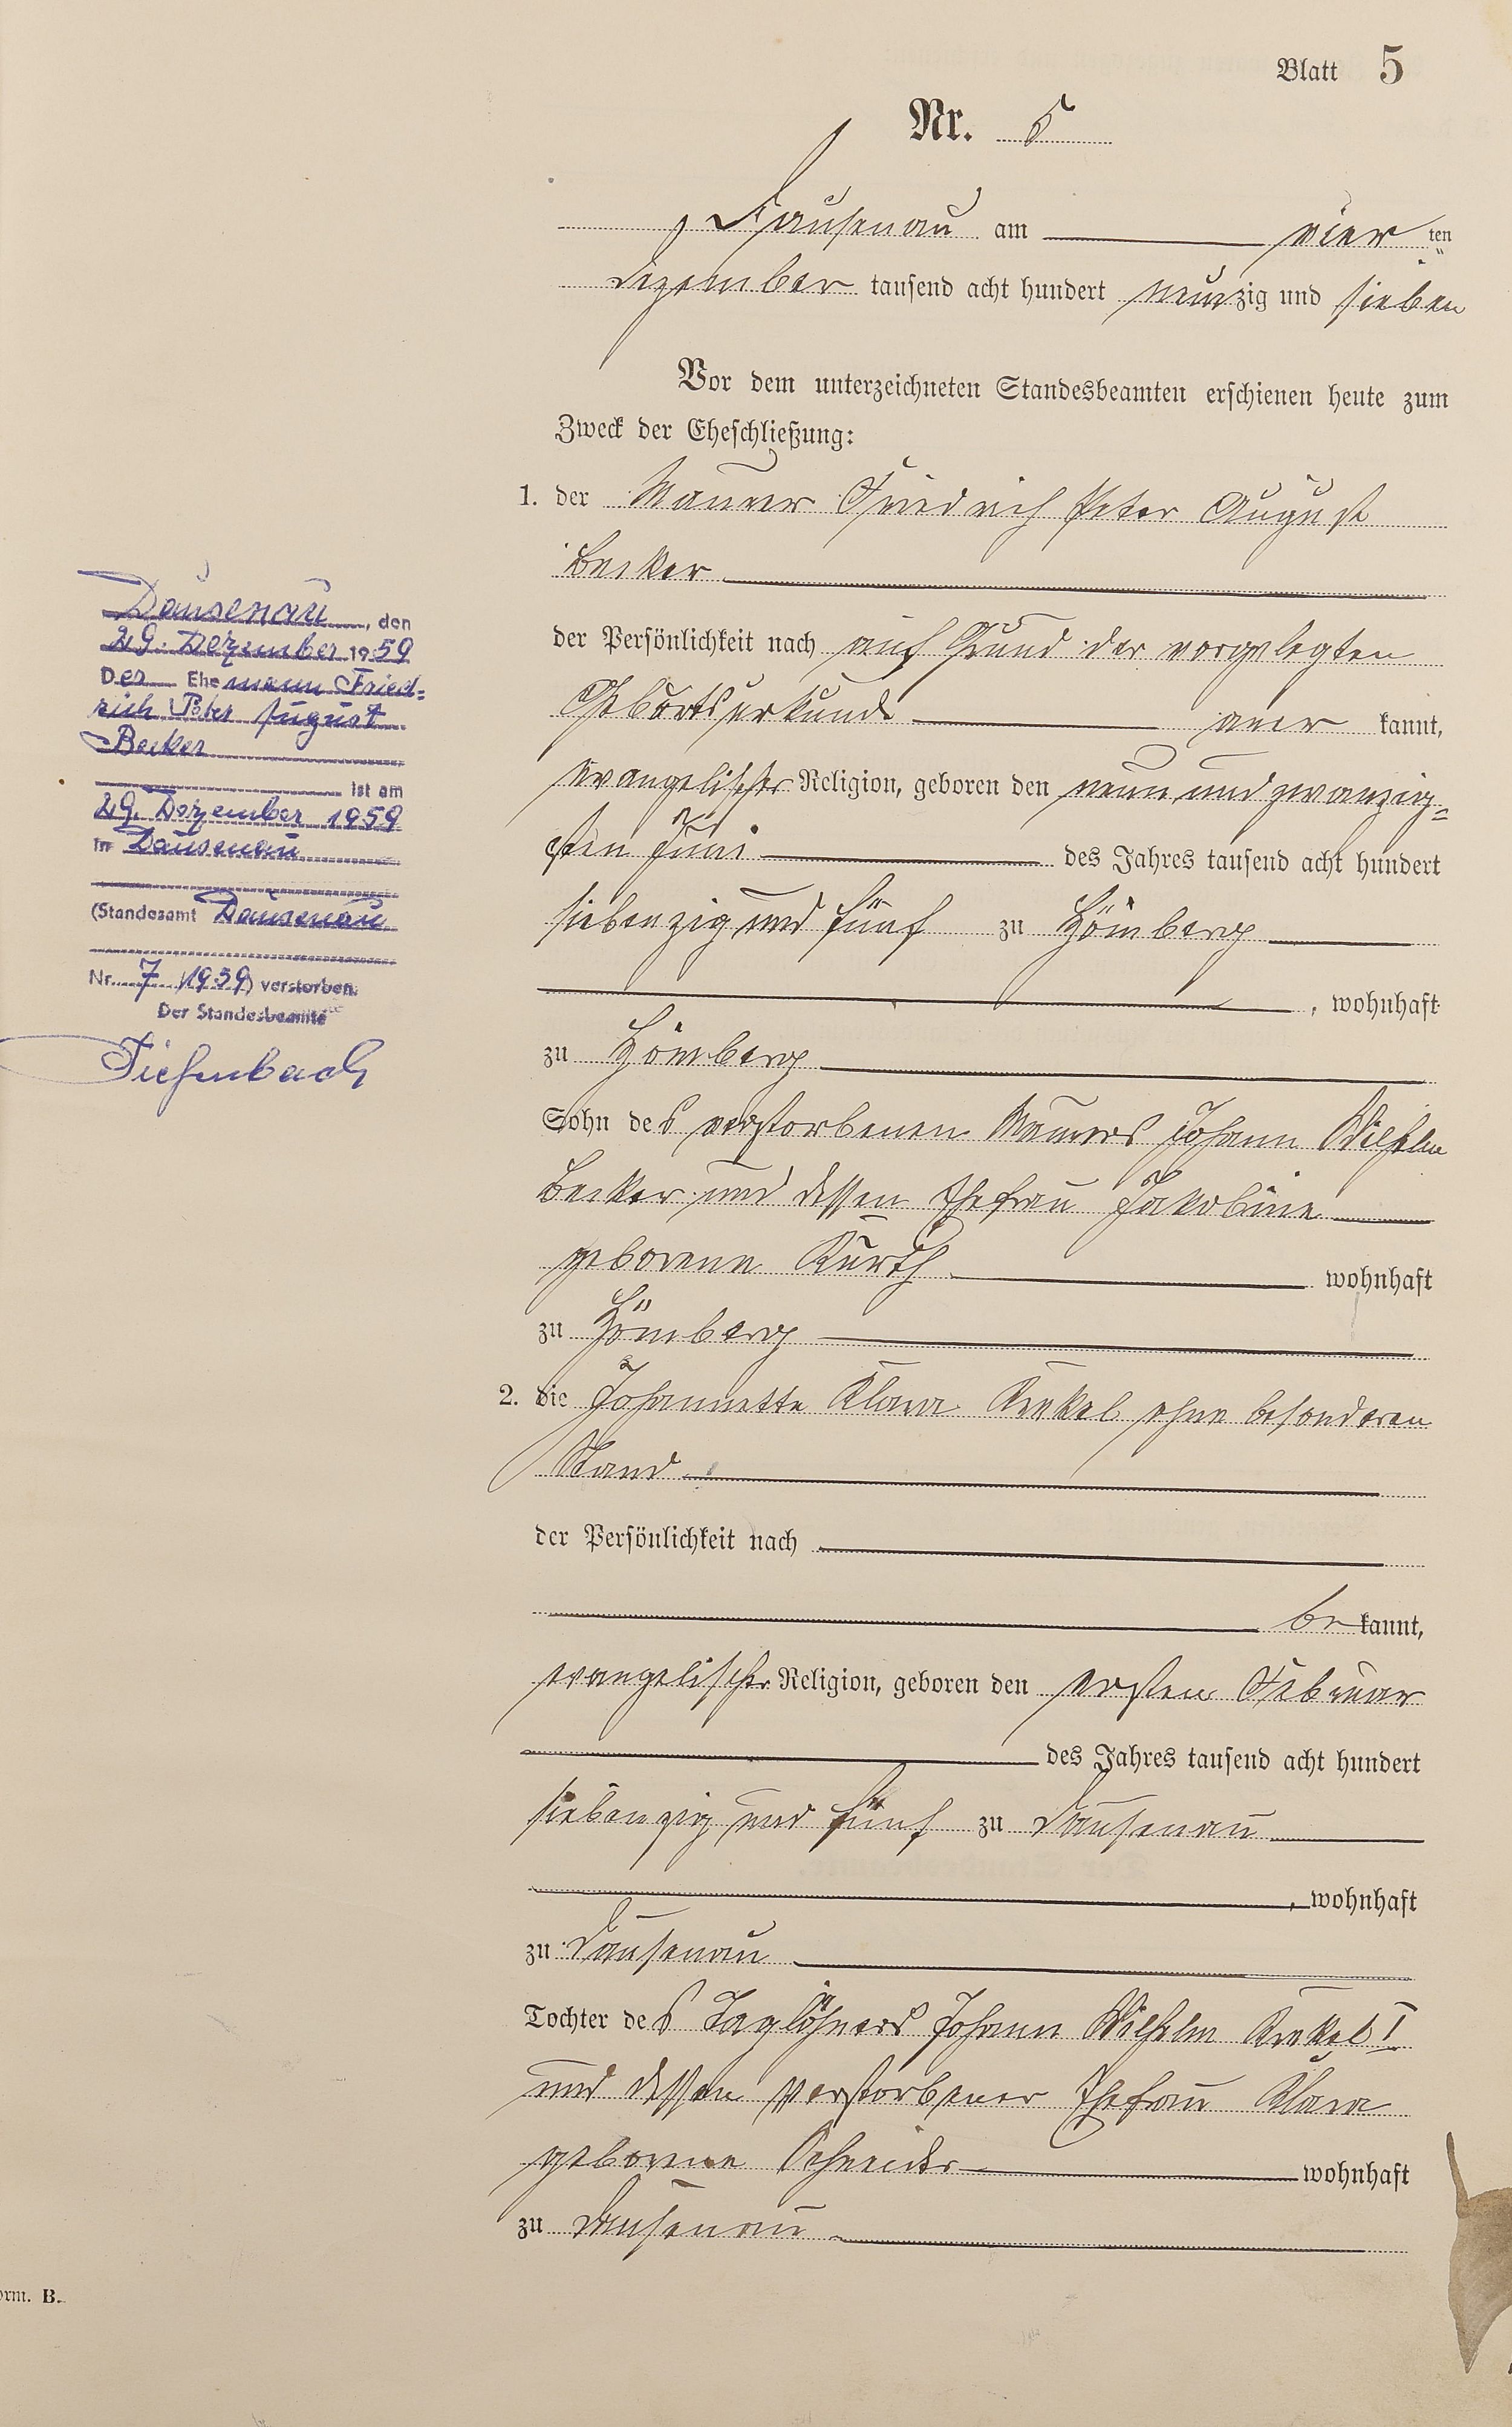 Blatt 5
Nr. 5
Dausenau am vierten
Dezember tausend acht hundert neunzig und sieben
Vor dem unterzeichneten Standesbeamten erschienen heute zum
Zweck der Eheschließung:
1. der Maurer Friedrich Peter August
Becker
der Persönlichkeit nach auf Grund der vorgelegten
Geburtsurkunde aner kannt,
evangelischer Religion, geboren den neun und zwanzig-
sten Juni des Jahres tausend acht hundert
siebenzig und fünf zu Hömberg
, wohnhaft
zu Hömberg
Sohn des verstorbenen Maurers Johann Wilhelm
Becker und dessen Ehefrau Jakobine
geborene Kurth wohnhaft
zu Hömberg
2. die Johannette Klara Krekel ohne besonderen
Stand
der Persönlichkeit nach
be kannt,
evangelischer Religion, geboren den ersten Februar
des Jahres tausend acht hundert
siebenzig und fünf zu Dausenau
, wohnhaft
zu Dausenau
Tochter des Taglöhners Johann Wilhelm Krekel I
und dessen verstorbener Ehefrau Klara
geborene Schneider wohnhaft
zu Dausenau
Dausenau, den
29. Dezember 1959
Der Ehemann Fried-
rich Peter August
Becker
ist am
29. Dezember 1959
in Dausenau
(Standesamt Dausenau
Nr. 7/1959) verstorben.
Der Standesbeamte
Tiefenbach
orm. B.